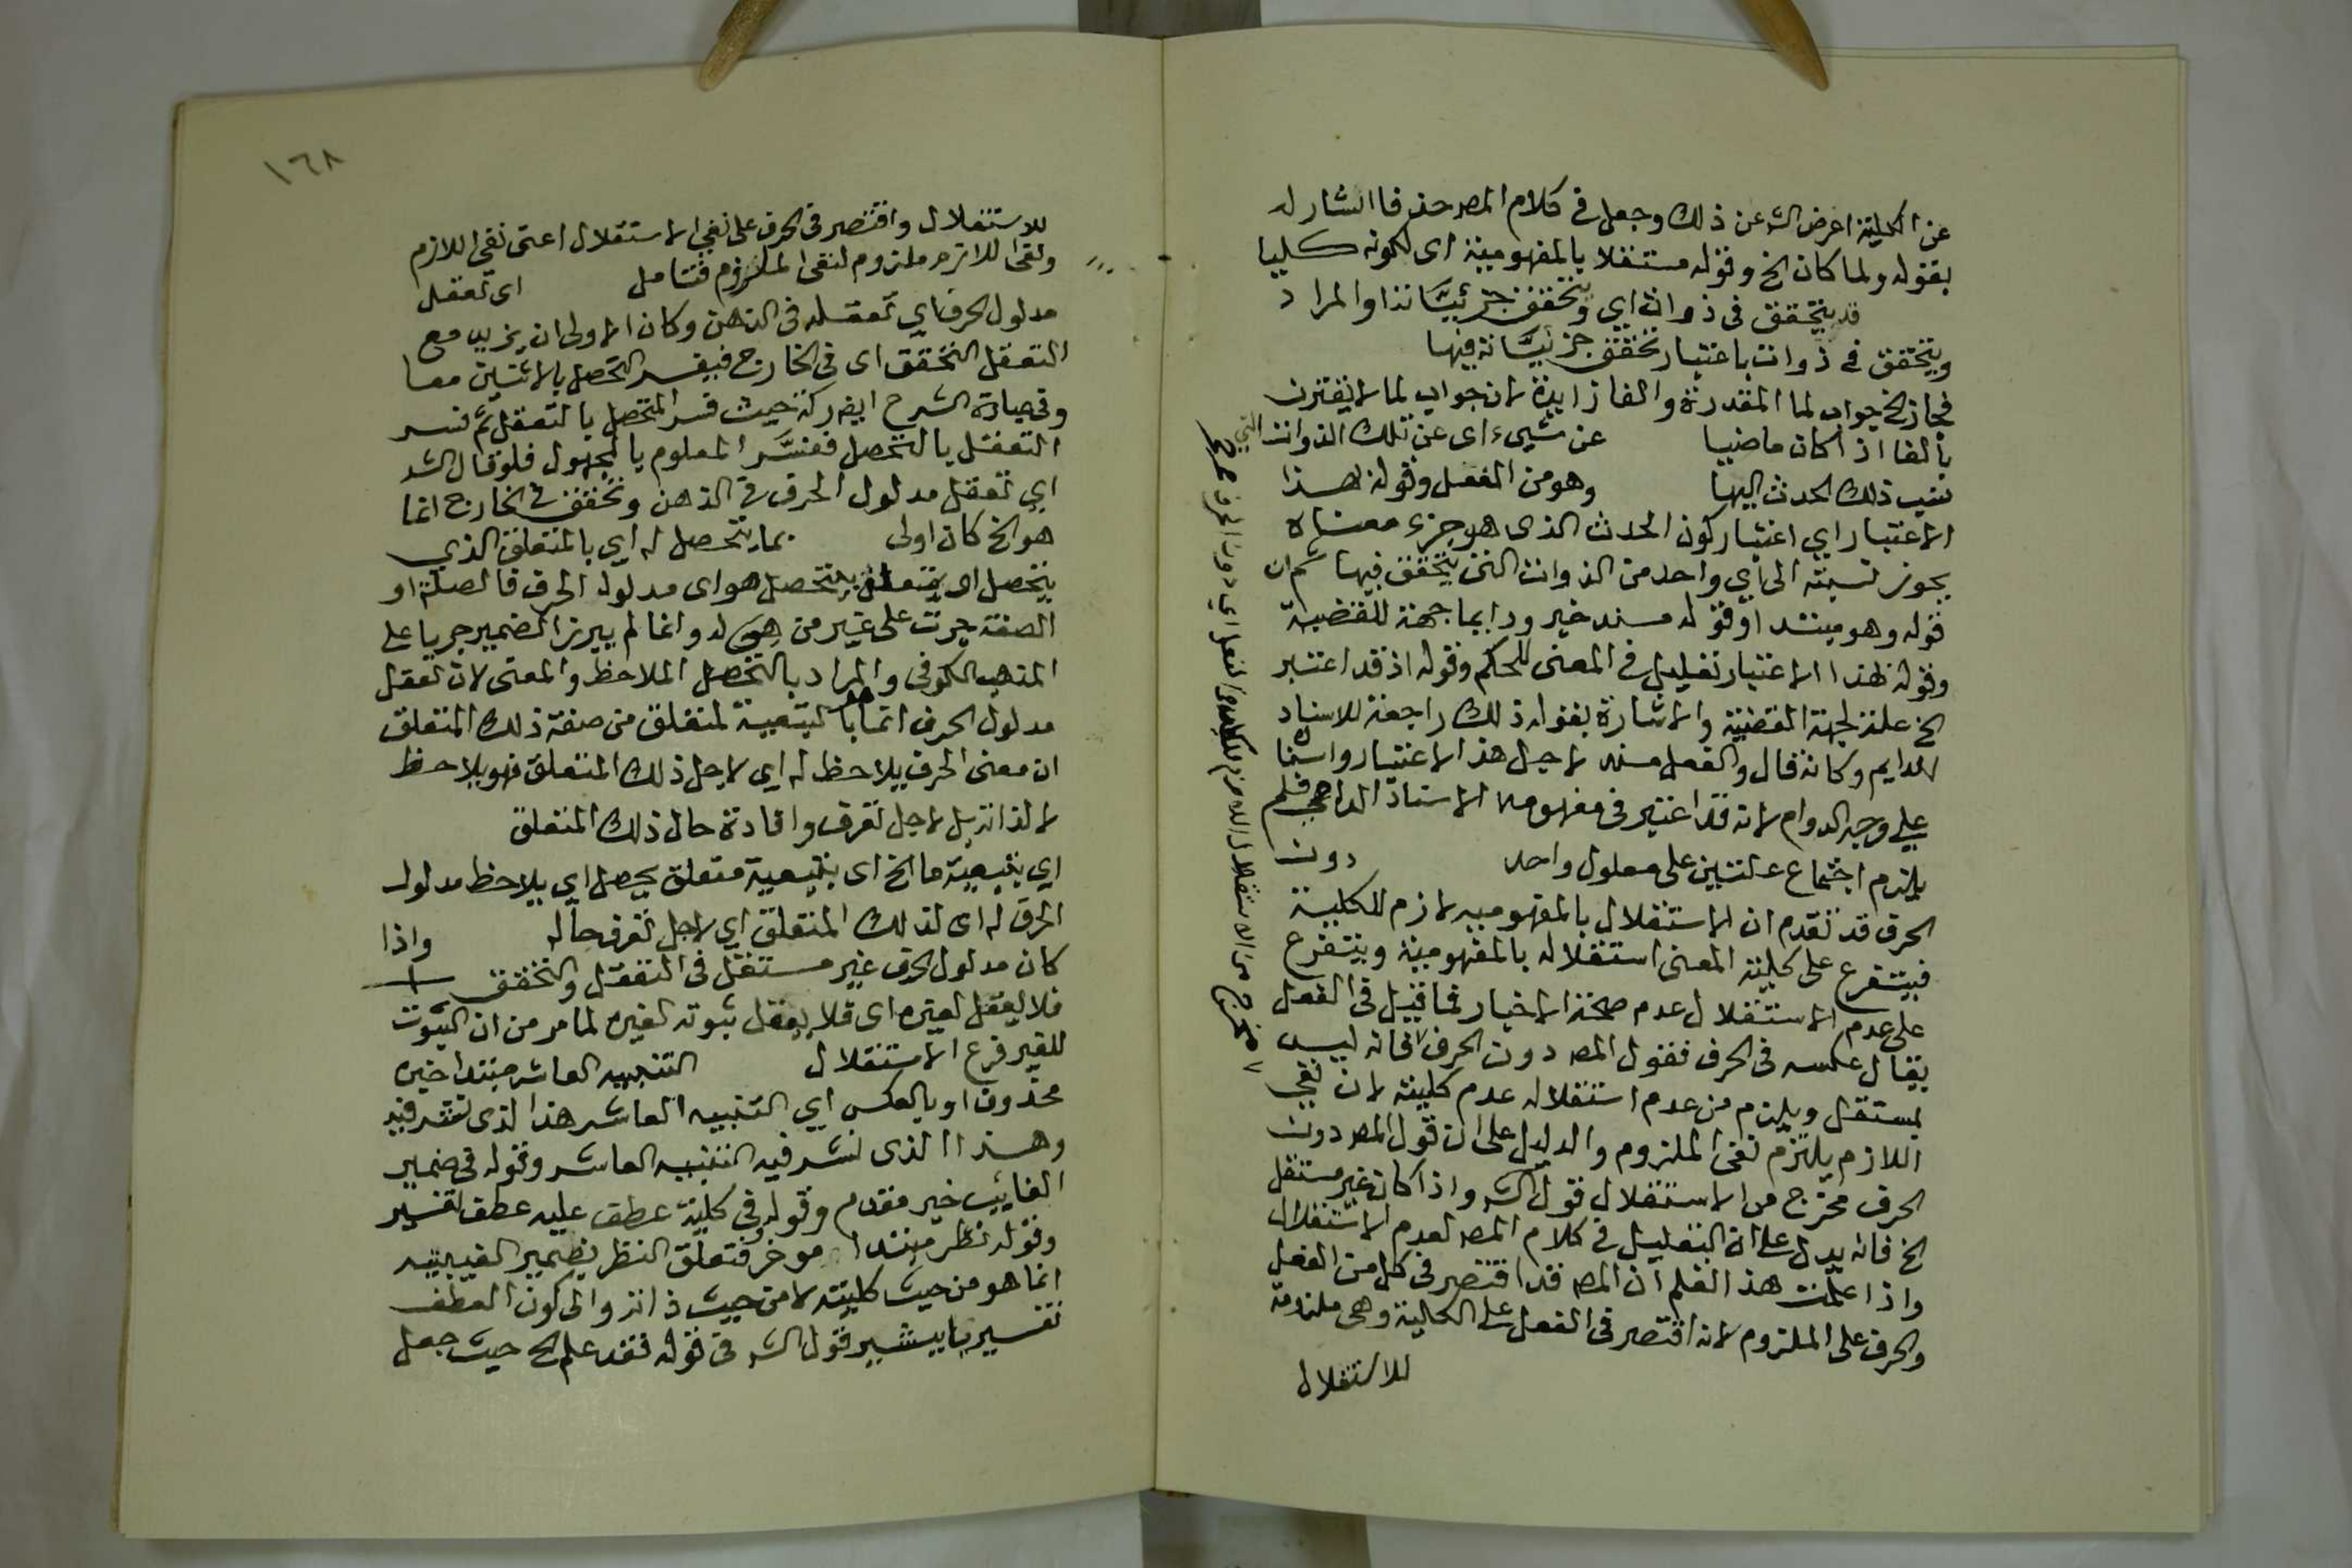 عن الكلية اعرض الشـ عن ذلك وجعل فى كلام المصـ حذفا اشار له
بقوله ولما كان الخ وقوله مستقلا بالمفهومية اى لكونه كليا
قد يتحقق فى ذوات اي وتتحقق جزئيَّاته اذا والمراد
ويتحقق فى ذوات باعتبار تحقق جزئيَّاته فيها
فجاز الخ جواب لما المقدرة والفا زايدة لان جواب لما لا يقترن
بالفا اذا كان ماضيا عن شيء اى عن تلك الذوات التي
نسب ذلك الحدث اليها وهو من الفعل وقوله لهذا
الاعتبار اي اعتبار كون الحدث الذى هو جزء معناه
يجوز نسبته الى أي واحد من الذوات التى يتحقق فيها ثم ان
قوله وهو مبتدا وقوله مسند خبر ودايما جهة للقضية
وقوله لهذا الاعتبار تعليل فى المعنى للحكم وقوله اذ قد اعتبر
الخ علة لجهة القضية والاشارة بقوله ذلك راجعة للاسناد
الدايم وكانه قال والفعل مسند لاجل هذا الاعتبار واسناده
على وجه الدوام لانه قد اعتبر فى مفهومه الاسناد الدايمي فلم
يلزم اجتماع علتين على معلول واحد دون
الحرف قد تقدم ان الاستقلال بالمفهومية لازم للكلية
فيتفرع على كلية المعنى استقلاله بالمفهومية ويتفرع
على عدم الاستقلال عدم صحة الاخبار فما قيل فى الفعل
يقال عكسه فى الحرف فقول المصـ دون الحرف اي فانه ليس
بمستقل ويلزم من عدم استقلاله عدم كليته لان نفي
اللازم يلزم نفى الملزوم والدليل على ان قول المصـ دون
الحرف مخرج من الاستقلال قول الشـ واذا كان غير مستقل
الخ فانه يدل على ان التعليل فى كلام المصـ لعدم الاستقلال
واذا علمت هذا فلتعلم ان المصـ قد اقتصر فى كل من الفعل
والحرف على الملزوم لانه اقتصر فى الفعل على الكلية وهى ملزومة
للاستقلال
١٦٨
للاستقلال واقتصر فى الحرف على نفي الاستقلال اعنى نفي اللازم
ونفى اللازم ملزوم لنفى الملزوم فتامل اى تعقل
مدلول الحرف اي تعقله فى الذهن وكان الاولى ان يزيد مع
التعقل التحقق اى فى الخارج فيفسر التحصل بالاثنين معا
وفى عبارة الشرح ايضـ ركة حيث فسر التحصل بالتعقل ثم فسر
التعقل بالتحصل ففسَّر المعلوم بالمجهول فلو قال الشـ
اي تعقل مدلول الحرف فى الذهن وتحققه فى الخارج انما
هو الخ كان اولى بما يتحصل له اي بالمتعلق الذي
يتحصل اى بمتعلق يتحصل هو اى مدلول الحرف فالصلة او
الصفة جرت على غير من هي له وانما لم يبرز الضمير جريا على
المذهب الكوفى والمراد بالتحصل الملاحظ والمعنى لان تعقل
مدلول الحرف انما هو بتبعية لمتعلق من صفة ذلك المتعلق
ان معنى الحرف يلاحظ له اي لاجل ذلك المتعلق فهو يلاحظ
لا لذاته بل لاجل تعرف وافادة حال ذلك المتعلق
اي بتبعية ما الخ اى بتبعية متعلق يحصل اي يلاحظ مدلول
الحرف له اى لذلك المتعلق اي لاجل تعرف حاله واذا
كان مدلول الحرف غير مستقل فى التعقل والتحقق
فلا يعقل لغيره اى فلا يعقل ثبوته لغيره لما مر من ان الثبوت
للغير فرع الاستقلال التنبيه العاشر مبتدا خبره
محذوف او بالعكس اي التنبيه العاشر هذا الذى نشر فيه
وهذا الذى نشر فيه التنبيه العاشر وقوله فى ضمير
الغائب خبر مقدم وقوله وفى كلية عطف عليه عطف تفسير
وقوله نظر مبتدا موخر فتعلق النظر بضمير الغيبة
انما هو من حيث كليته لا من حيث ذاته والى كون العطف
تفسيريا يشير قول الشـ فى قوله فقد علم الخ حيث جعل